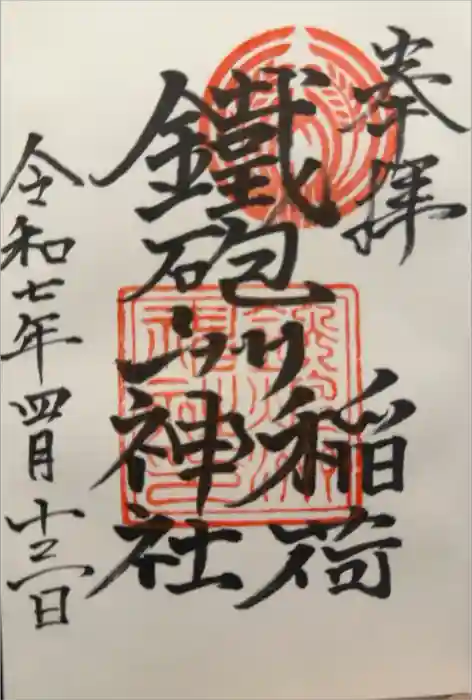 奉拝
鐵砲洲稲荷神社
令和七年四月十三日